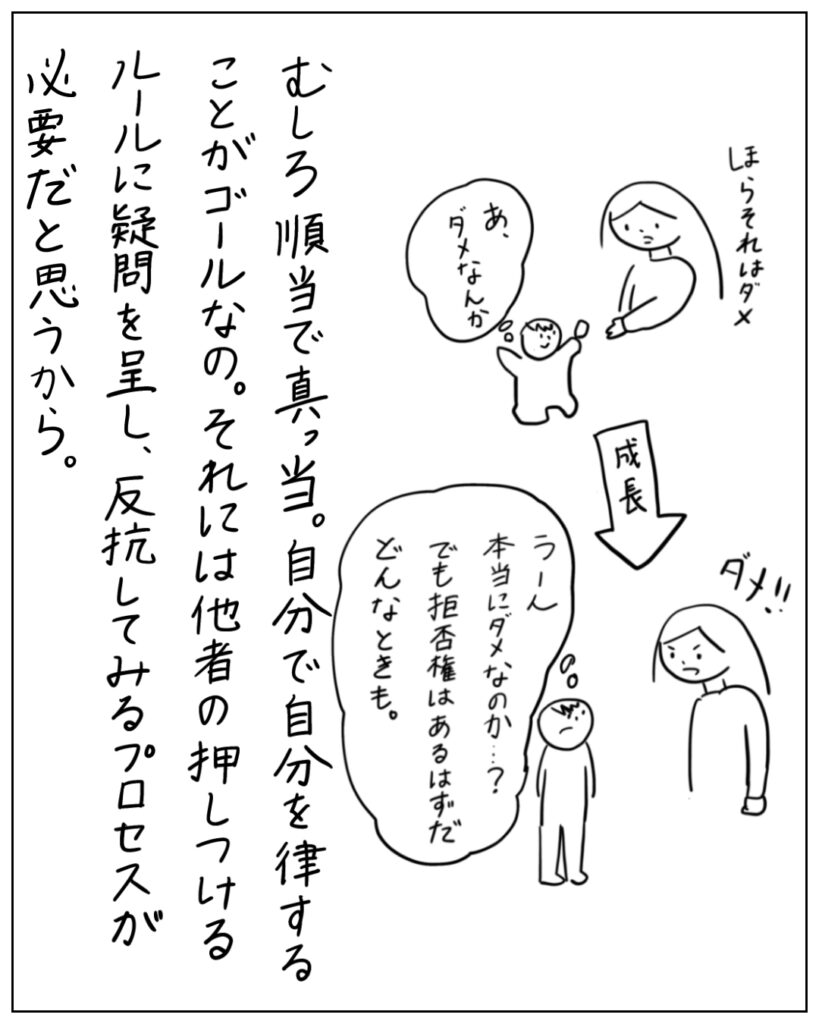 ほらそれはダメ
あ、
ダメなんか
成長
ダメ!!
うーん
本当にダメなのか…?
でも拒否権はあるはずだ
どんなときも。
むしろ順当で真っ当。自分で自分を律する
ことがゴールなの。それには他者の押しつける
ルールに疑問を呈し、反抗してみるプロセスが
必要だと思うから。